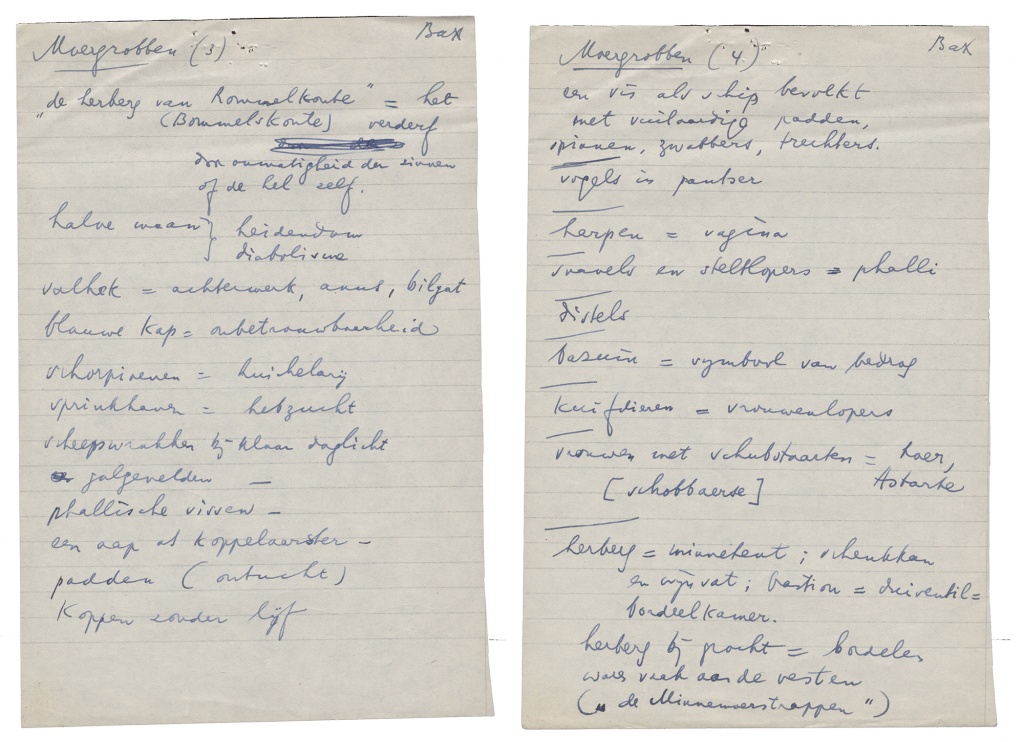 Moergrobben (3) Bax
"de herberg van Rommelkonte" = het
(Bommelskonte) verderf
door onmatigheid der zinnen
of de hel zelf.
halve maan } heidendom
diabolisme
valhek = achterwerk, anus, bilgat
blauwe kap = onbetrouwbaarheid
schorpioenen = huichelarij
sprinkhanen = hebzucht
scheepswrakken bij klaar daglicht
galgevelden —
phallische vissen —
een aap als koppelaarster —
padden (ontucht)
Koppen zonder lijf
Moergrobben (4) Bax
een vis als schip bevolkt
met vuilaardige padden,
spinnen, zwabbers, trechters.
vogels in pantser
herpen = vagina
snavels en steltlopers = phalli
distels
bazuin = symbool van bedrog
kuifdieren = vrouwenlopers
vrouwen met schubstaarten = hoer,
[schobbaerse] Astarte
herberg = minnetent; schenkkan
en wijnvat; bastion = duiventil =
bordeelkamer.
herberg bij gracht = bordelen
waren vaak aan de vesten
("de Minnemoerstrappen")